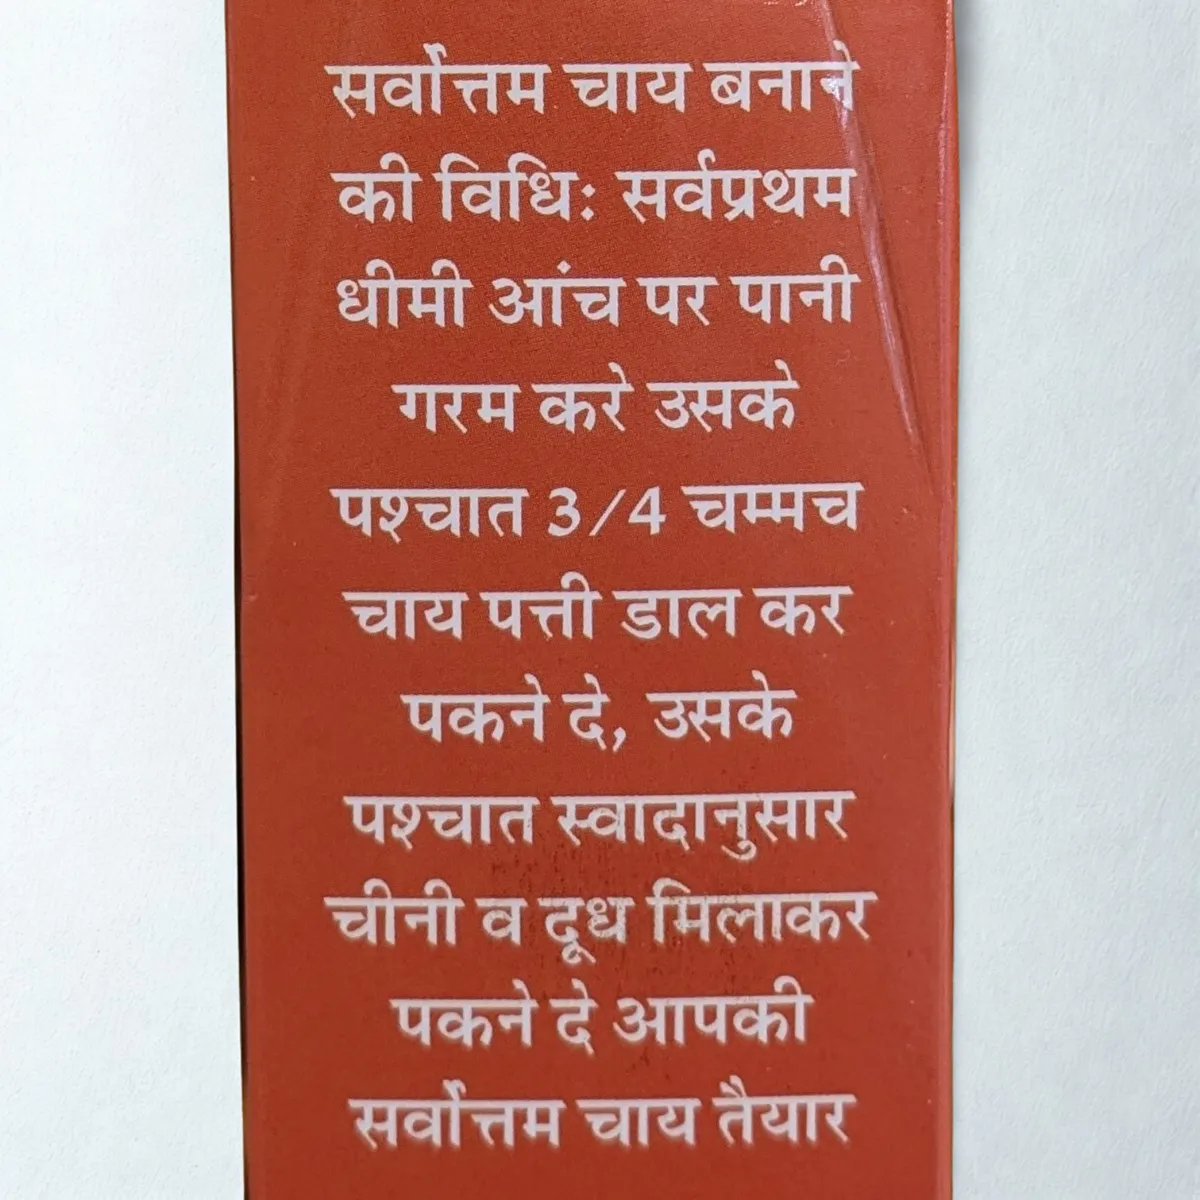 सर्वोत्तम चाय बनाने
की विधि: सर्वप्रथम
धीमी आंच पर पानी
गरम करे उसके
पश्चात 3/4 चम्मच
चाय पत्ती डाल कर
पकने दे, उसके
पश्चात स्वादानुसार
चीनी व दूध मिलाकर
पकने दे आपकी
सर्वोत्तम चाय तैयार